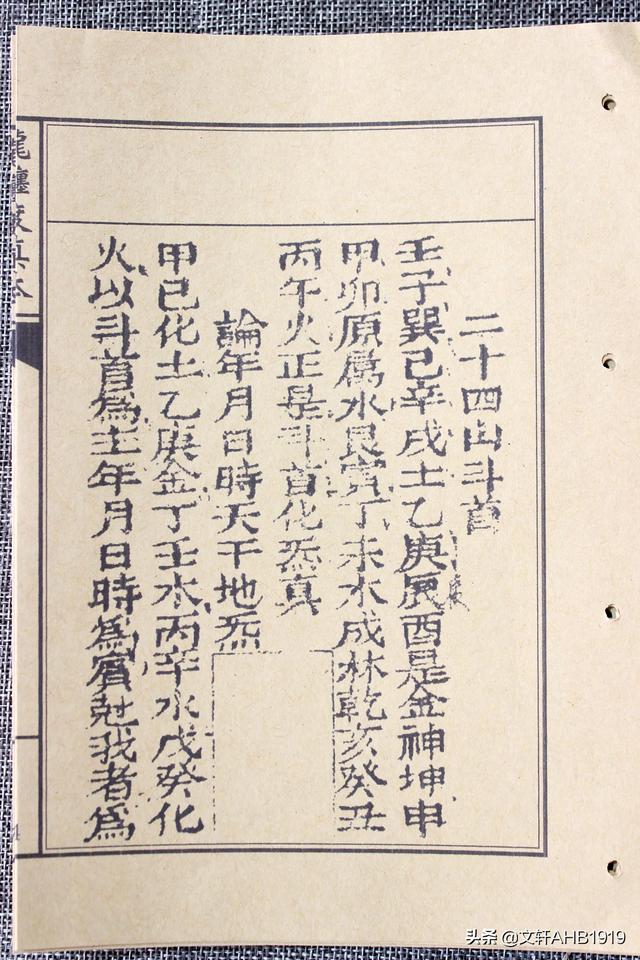 二十四山斗首
壬子巽巳辛戌土乙庚辰酉是金神坤申
甲卯原属水艮寅丁未木成林乾亥癸丑
丙午火正是斗首化炁真
論年月日時天干地炁
甲己化土乙庚金丁壬木丙辛水戊癸化
火以斗首為主年月日時為賓尅我者為
头条 @文轩AHB1919